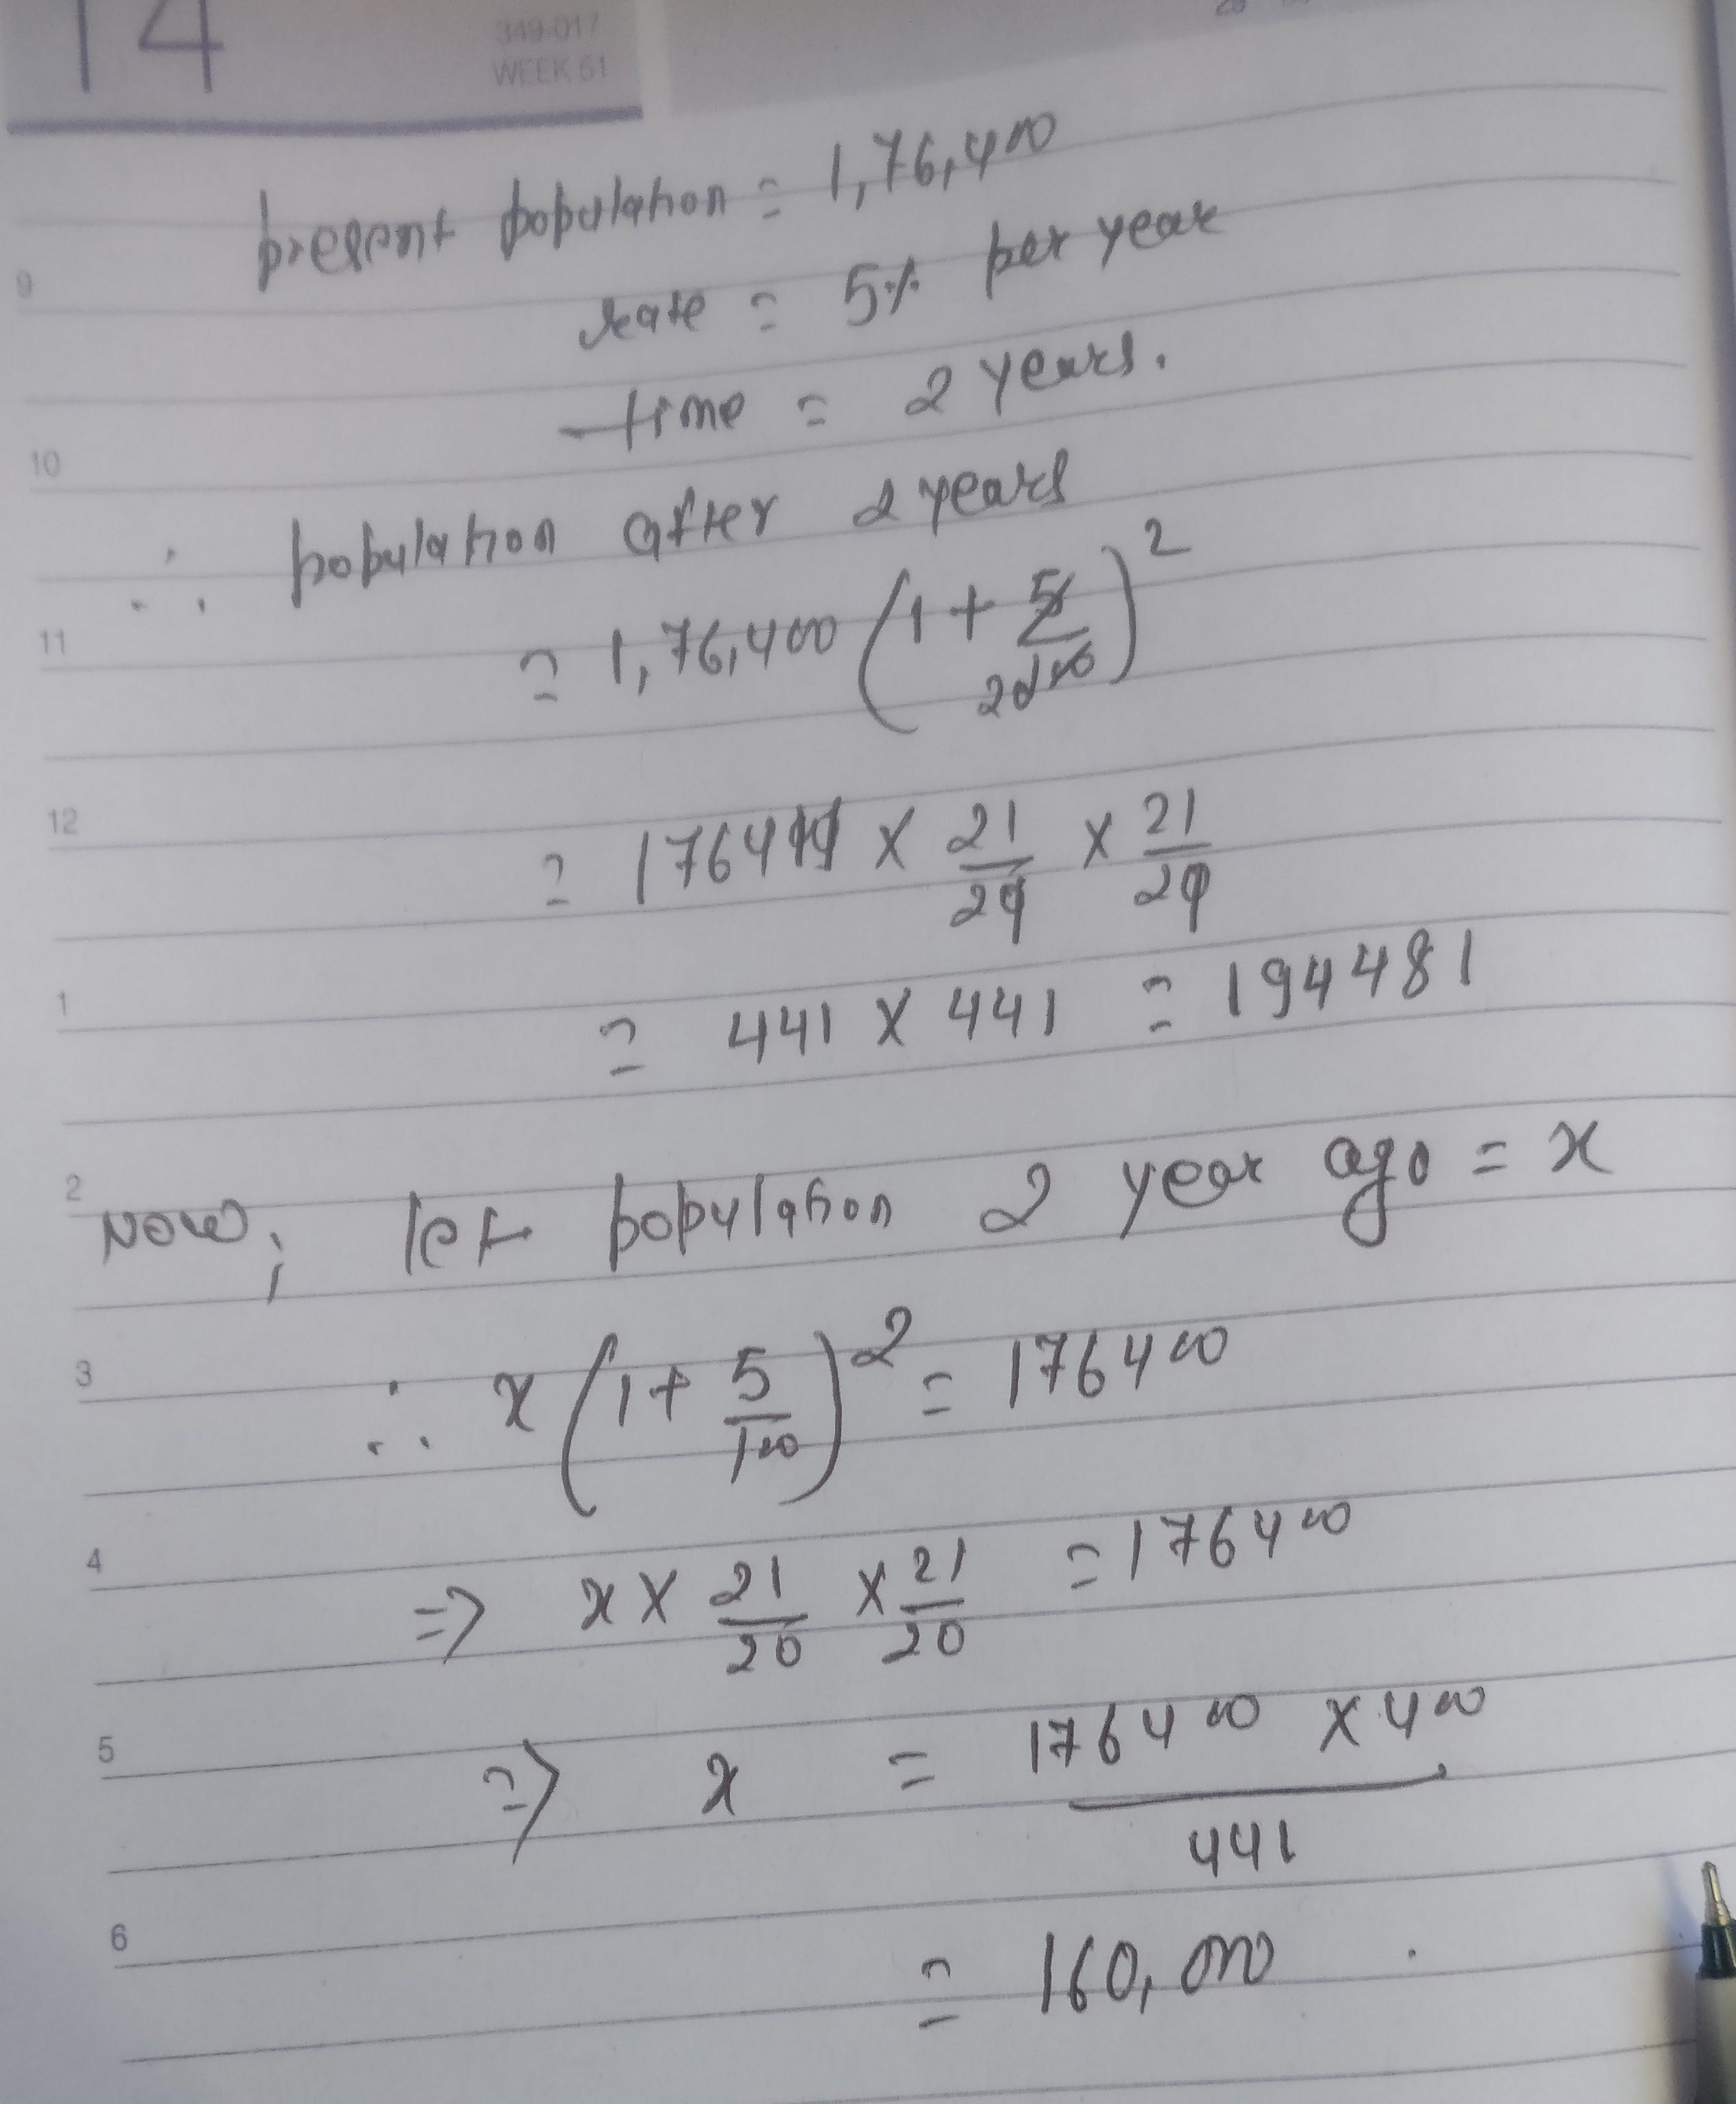 14
349-017
WEEK 51
present population = 1,76,400
9
rate = 5% per year
time = 2 years.
10
∴ population after 2 years
11
= 1,76,400 (1 + 5/20 100)²
12
= 176400 × 21/20 × 21/20
1
= 441 × 441 = 194481
2
Now; let population 2 year ago = x
3
∴ x (1 + 5/100)² = 176400
4
=> x × 21/20 × 21/20 = 176400
5
=> x = 176400 × 400 / 441
6
= 160,000